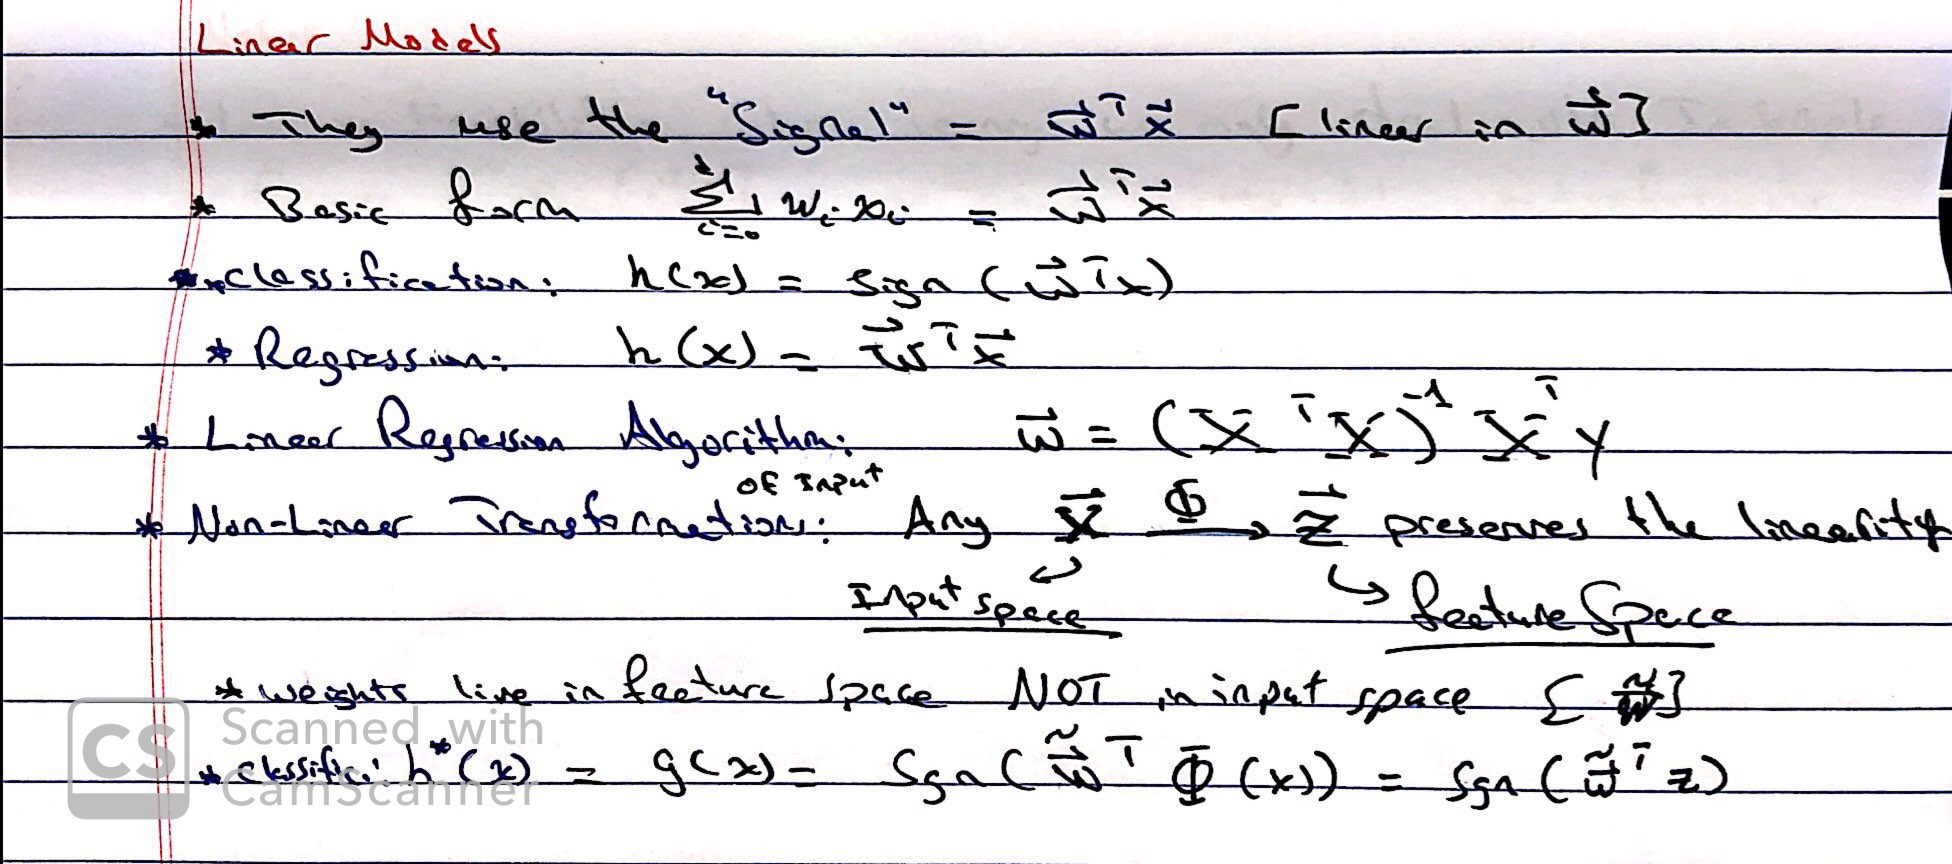 Linear Models
* They use the "Signal" = w⃗ᵀx⃗ [linear in w⃗]
* Basic form ∑_{i=0}^{d} wᵢxᵢ = w⃗ᵀx⃗
* classification: h(x) = sign (w⃗ᵀx)
* Regression: h(x) = w⃗ᵀx⃗
* Linear Regression Algorithm: w⃗ = (XᵀX)⁻¹Xᵀy
* Non-Linear Transformations of Input: Any x⃗ —Φ→ z⃗ preserves the linearity
Input space feature Space
* weights live in feature space NOT in input space [w̃]
* classific: h*(x) = g(x) = Sgn(w̃⃗ᵀ Φ(x)) = Sgn(w̃⃗ᵀz)
CS Scanned with CamScanner